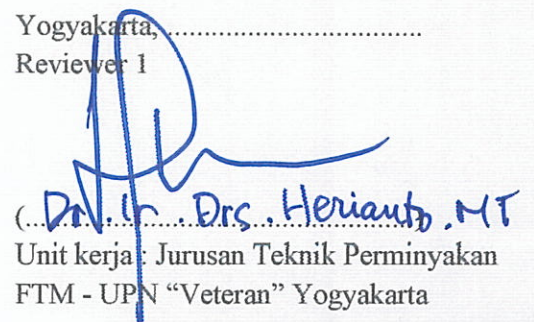 Yogyakarta, ....................................
Reviewer 1
(Dr. Ir. Drs. Herianto, MT)
Unit kerja : Jurusan Teknik Perminyakan
FTM - UPN “Veteran” Yogyakarta